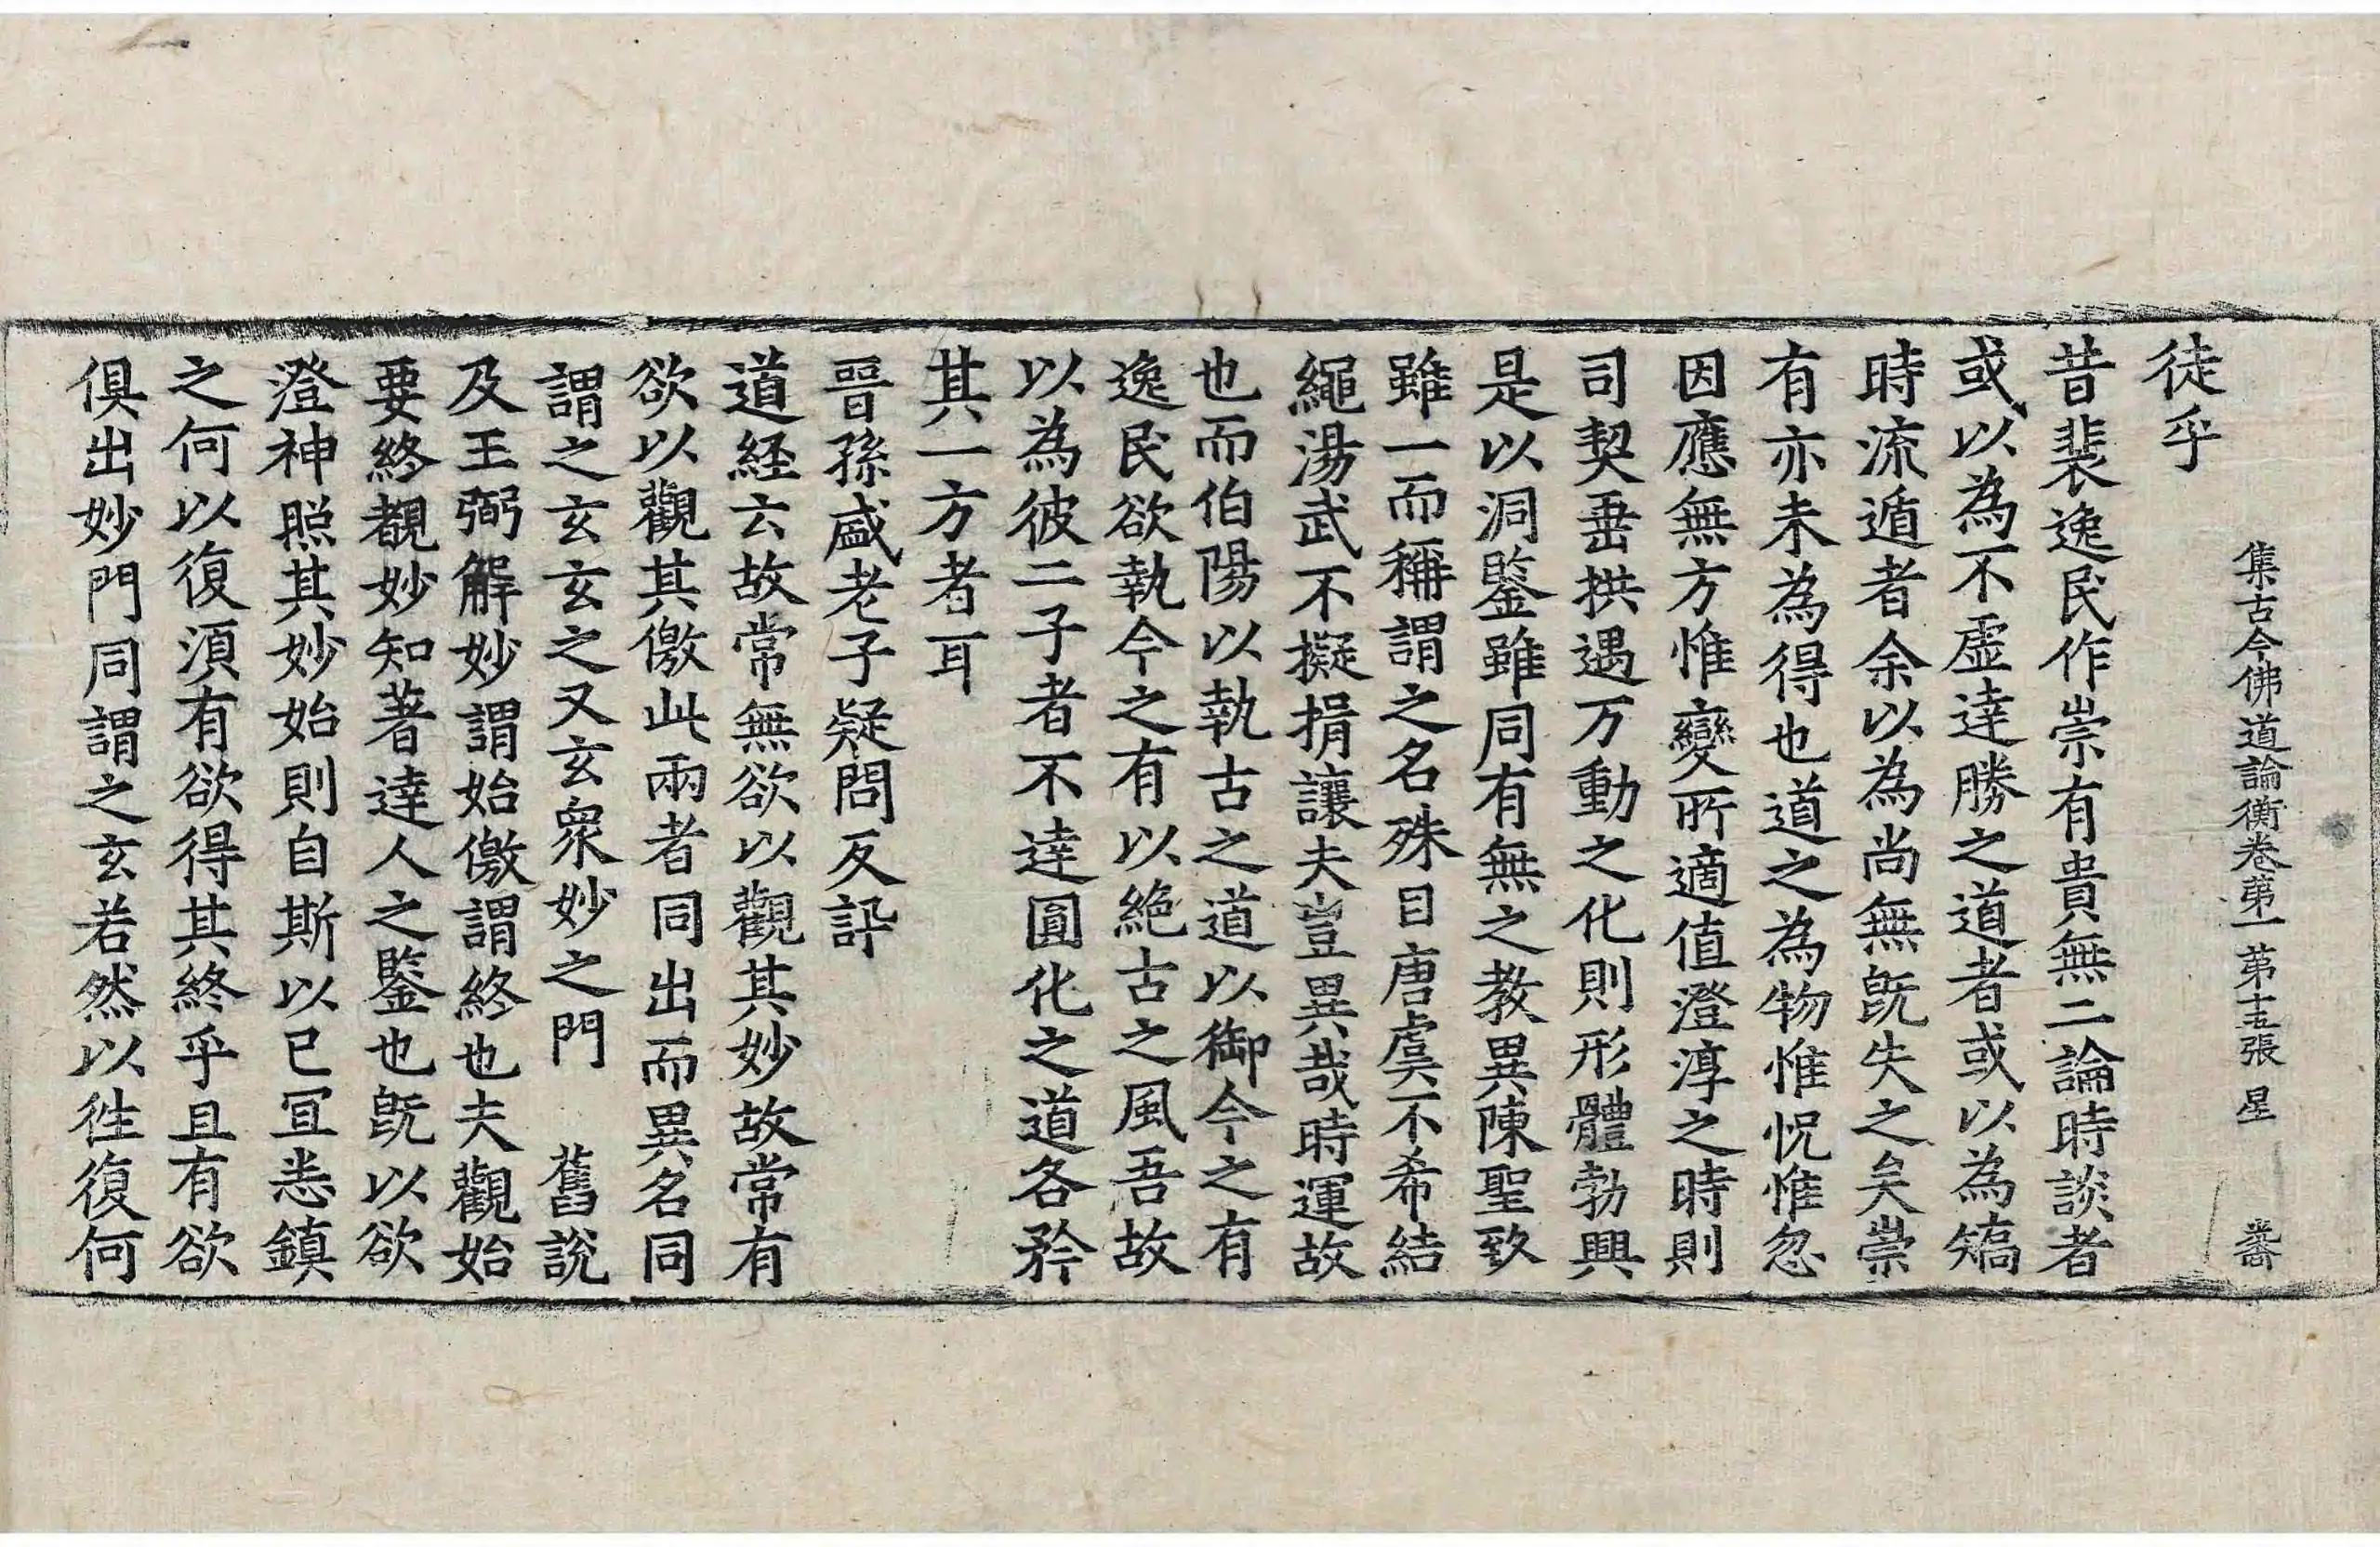 集古今佛道論衡卷第一 第十五張 星
徒乎
昔裴逸民作崇有貴無二論時談者
或以為不虛達勝之道者或以為矯
時流遁者余以為尚無既失之矣崇
有亦未為得也道之為物惟怳惟忽
因應無方惟變所適值澄淳之時則
司契垂拱遇万動之化則形體勃興
是以洞鑒雖同有無之教異陳聖致
雖一而稱謂之名殊目唐虞不希結
繩湯武不擬捐讓夫豈異哉時運故
也而伯陽以執古之道以御今之有
逸民欲執今之有以絕古之風吾故
以為彼二子者不達圓化之道各矜
其一方者耳
晉孫盛老子疑問反訊
道経云故常無欲以觀其妙故常有
欲以觀其儌此兩者同出而異名同
謂之玄玄之又玄衆妙之門 舊說
及王弼解妙謂始儌謂終也夫觀始
要終覩妙知著達人之鑒也既以欲
澄神照其妙始則自斯以已冝恙鎮
之何以復湏有欲得其終乎且有欲
俱出妙門同謂之玄若然以徃復何